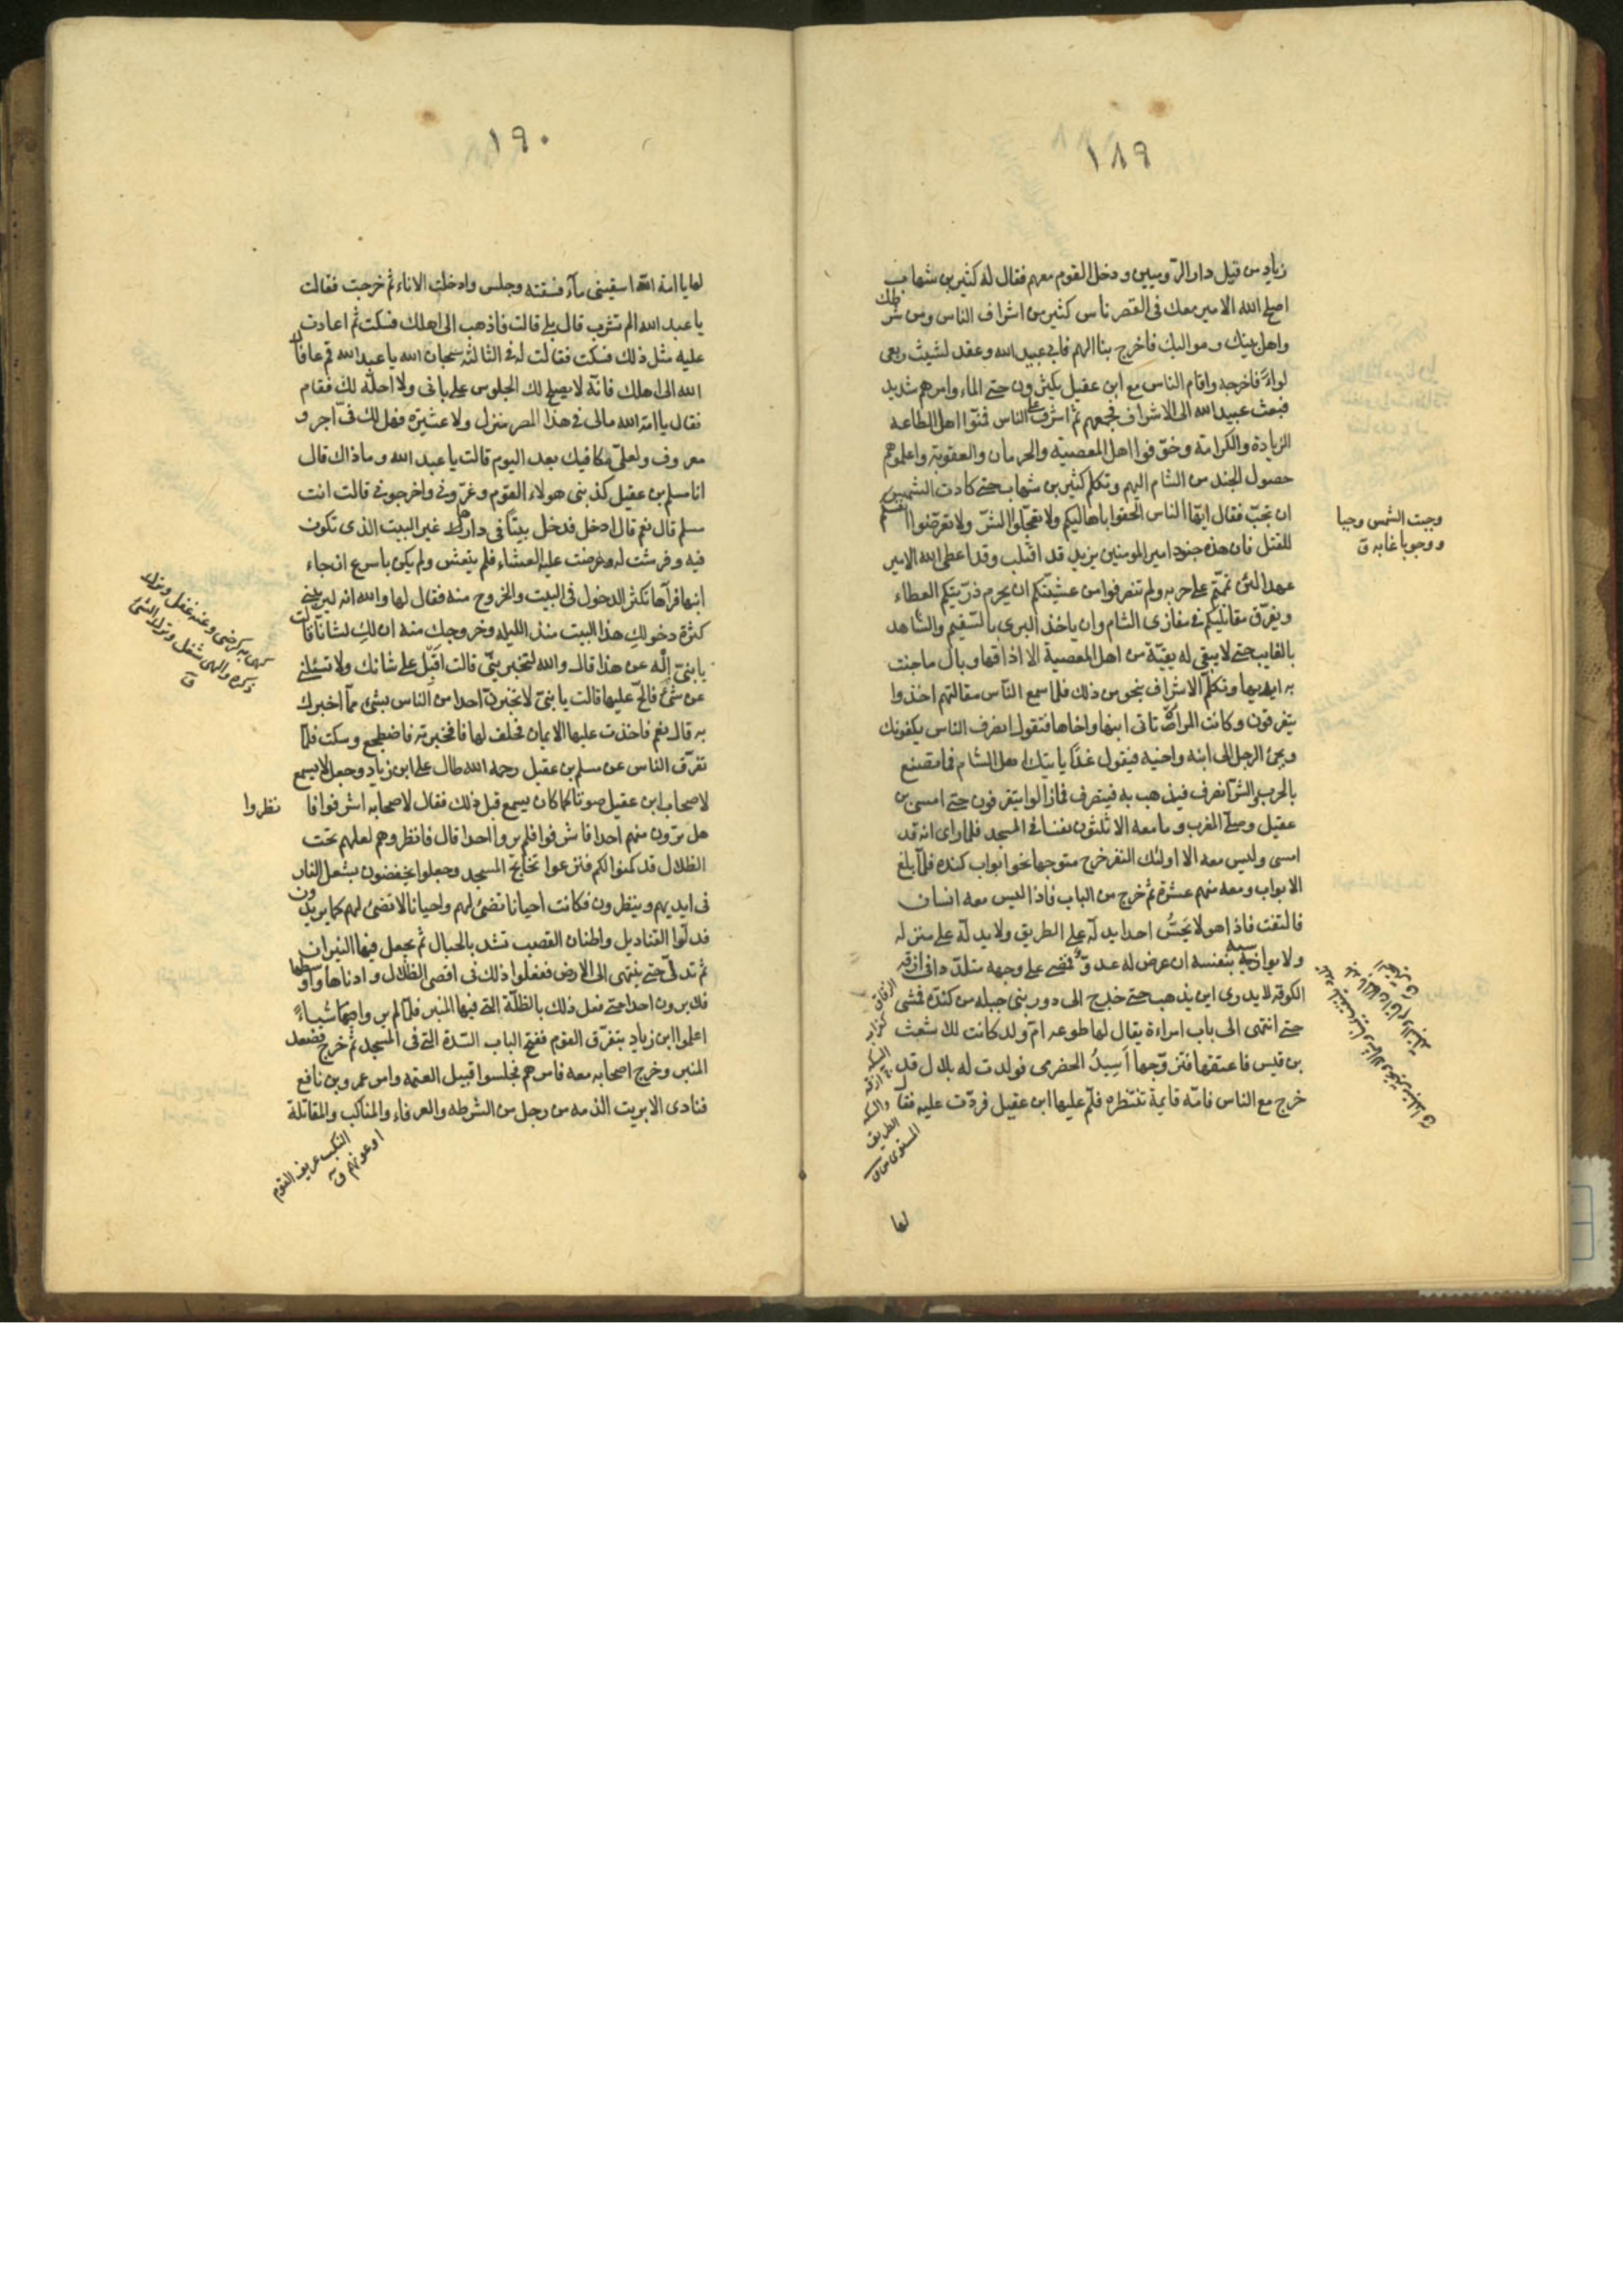 ١٨٩
زياد من قبل دار الروميين ودخل القوم معهم فقال له كثير بن شهاب
اصلح الله الامير معك فى القصر ناس كثير من اشراف الناس ومن شرطك
واهل بيتك ومواليك فاخرج بنا اليهم فابى عبيد الله وعقد لشبث ربعى
لواءً فاخرجه واقام الناس مع ابن عقيل يكثرون حتى المساء وامرهم شديد
فبعث عبيد الله الى الاشراف فجمعهم ثم اشرف على الناس فمنّوا اهل الطاعه
الزيادة والكرامة وخوّفوا اهل المعصية والحرمان والعقوبة واعلموهم
حصول الجند من الشام اليهم وتكلم كثير بن شهاب حتى كادت الشمس
ان تجب فقال ايها الناس الحقوا باهاليكم ولا تعجّلوا الشرّ ولا تعرّضوا انفسكم
للقتل فان هذه جنود امير المومنين يزيد قد اقبلت وقد اعطى الله الامير
عهدا لئن تممتم على حربه ولم تنصرفوا من عشيتكم ان يحرم ذرّيتكم العطاء
ويفرّق مقاتليكم فى مغازى الشام وان ياخذ البرى بالسّقيم والشاهد
بالغايب حتى لا يبقى له بقيّة من اهل المعصية الا اذاقها وبال ما جنت
به ايديها وتكلم الاشراف بنحو من ذلك فلما سمع الناس مقالتهم اخذوا
يتفرقون وكانت المراة تاتى ابنها واخاها فتقول انصرف الناس يكفونك
ويجئ الرجل الى ابنه واخيه فيقول غداً ياتيك اهل الشام فما تصنع
بالحرب والشرّ انصرف فيذهب به فينصرف فمازالوا يتفرقون حتى امسى بن
عقيل وصلّى المغرب وما معه الا ثلثون نفسا فى المسجد فلما راى انه قد
امسى وليس معه الا اولئك النفر خرج متوجها نحو ابواب كنده فلمّا بلغ
الابواب ومعه منهم عشرة ثم خرج من الباب فاذا ليس معه انسان
فالتفت فاذا هو لا يحسُّ احدا يدله على الطريق ولا يدلّه على منزله
ولا يواسيه بنفسه ان عرض له عدوّ فمضى على وجهه متلدّدا فى ازقه
الكوفه لا يدرى اين يذهب حتى خرج الى دور بنى جبله من كندة فمشى
حتى انتهى الى باب امراءة يقال لها طوعه امّ ولد كانت للاشعث
بن قيس فاعتقها فتزوّجها اَسِيدُ الحضرى فولدت له بلال قد
خرج مع الناس فامّه قايمة تنتظره فلّم عليها ابن عقيل فردّت عليه فقال
لها
وجبت الشمس وجبا
ووجوبا غابه ق
الزقاق
السكه
والسكه
الطريق
المستوى
١٩٠
لها يا امة الله اسقينى مآء فسقته وجلس وادخلت الاناء ثم خرجت فقالت
يا عبد الله الم تشرب قال بلى قالت فاذهب الى اهلك فسكت ثم اعادت
عليه مثل ذلك فسكت فقالت له فى الثالثه سبحان الله يا عبد الله قم عافاك
الله الى اهلك فانّه لا يصلح لك الجلوس على بابى ولا احلّه لك فقام
فقال يا امة الله مالى فى هذا المصر منزل ولا عشيرة فهل لك فى اجر و
معروف ولعلّى مكافيك بعد اليوم قالت يا عبد الله وما ذاك قال
انا مسلم بن عقيل كذبنى هولاء القوم وغرّونى واخرجونى قالت انت
مسلم قال نعم قال ادخل فدخل بيتاً فى دارها غير البيت الذى تكون
فيه وفرشت له وعرضت عليه العشاء فلم يتعش ولم يكن باسرع ان جاء
ابنها فرآها تكثر الدخول فى البيت والخروج منه فقال لها والله انه ليريبنى
كثرة دخولكِ هذا البيت منذ الليله وخروجك منه ان لكِ لشاناً قالت
يا بنىّ اِلْه عن هذا قال والله لتخبريننّى قالت اَقبِل على شانك ولا تسئلنى
عن شئ فالحّ عليها قالت يا بنىّ لا تخبرنّ احدا من الناس بشئ ممّا اخبرك
به قال نعم فاخذت عليه الايمان فحلف لها فاخبرته فاضطجع وسكت فلمّا
تفرّق الناس عن مسلم بن عقيل رحمه الله طال على ابن زياد وجعل لا يسمع
لاصحاب ابن عقيل صوتا كما كان يسمع قبل ذلك فقال لاصحابه اشرفوا فا نظروا
هل ترون منهم احدا فاشرفوا فلم يروا احدا قال فانظروهم لعلهم تحت
الظلال قد كمنوا لكم فنزعوا تخاتج المسجد وجعلوا يخفضون بشعل النار
فى ايديهم وينظرون فكانت احيانا تضئ لهم واحيانا لا تضئ لهم كما يريدون
فدلّوا القناديل واطنان القصب تشد بالحبال ثم يجعل فيها النيران
ثم تدلّى حتى ينتهى الى الارض ففعلوا ذلك فى اقصى الظلال وادناها واوسطها
فلا يرون احدا حتى فعل ذلك بالظلّة التى فيها المنبر فلمّا لم يروا منهم شيئاً
اعلموا ابن زياد بتفرّق القوم ففتح الباب السّدة التى فى المسجد ثم خرج فصعد
المنبر وخرج اصحابه معه فامرهم فجلسوا قبيل العتمه وامر عمرو بن نافع
فنادى الا بريت الذمه من رجل من الشرطه والعرفاء والمناكب والمقاتلة
لهى به كرضى وعنه غفل وترك
ذكره والهى شغل وترك الشئ
ق
النكب عريف القوم
او عونهم ق